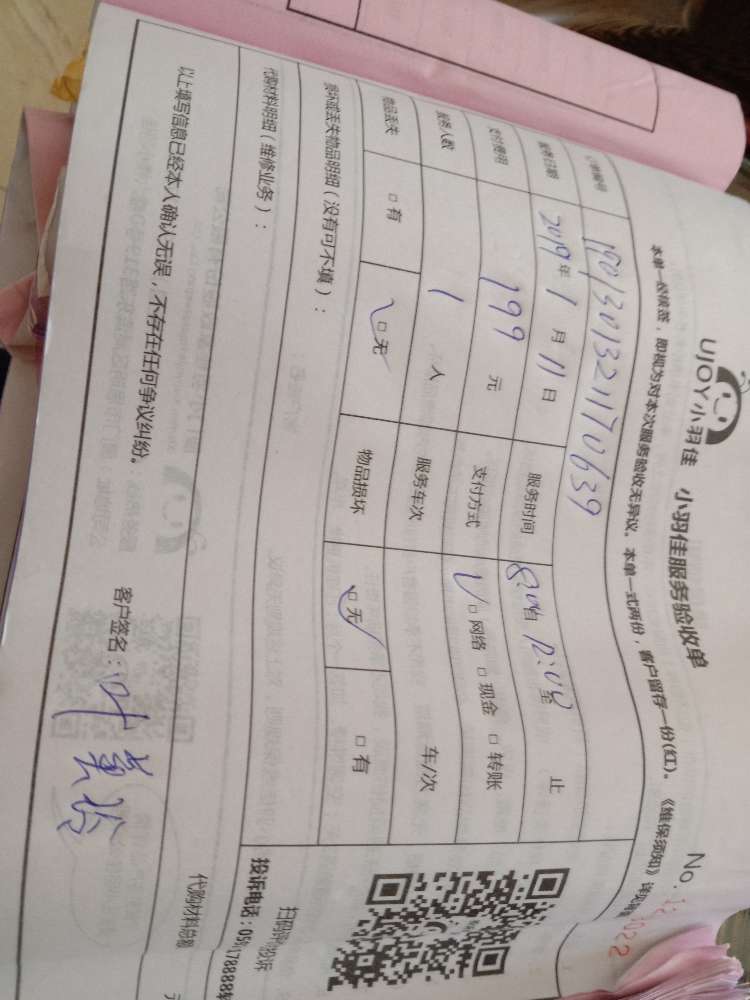 UJOY小羽佳 小羽佳服务验收单
No.
本单一经核签,即视为对本次服务验收无异议。本单一式两份,客户留存一份(红)。《维保须知》
订单编号 190130132117​0639
服务日期 2019年 1 月 11 日 服务时间 8:00 自 12:00 至 止
支付费用 199 元 支付方式 □ 网络 □ 现金 □ 转账
服务人数 1 人 服务车次 车/次
物品丢失 □ 有 □ 无 物品损坏 □ 无 □ 有
损坏或丢失物品明细(没有可不填):
扫码 投诉
投诉电话:
代购材料明细(维修业务):
代购材料总额
元
以上填写信息已经本人确认无误,不存在任何争议纠纷。
客户签名:叶